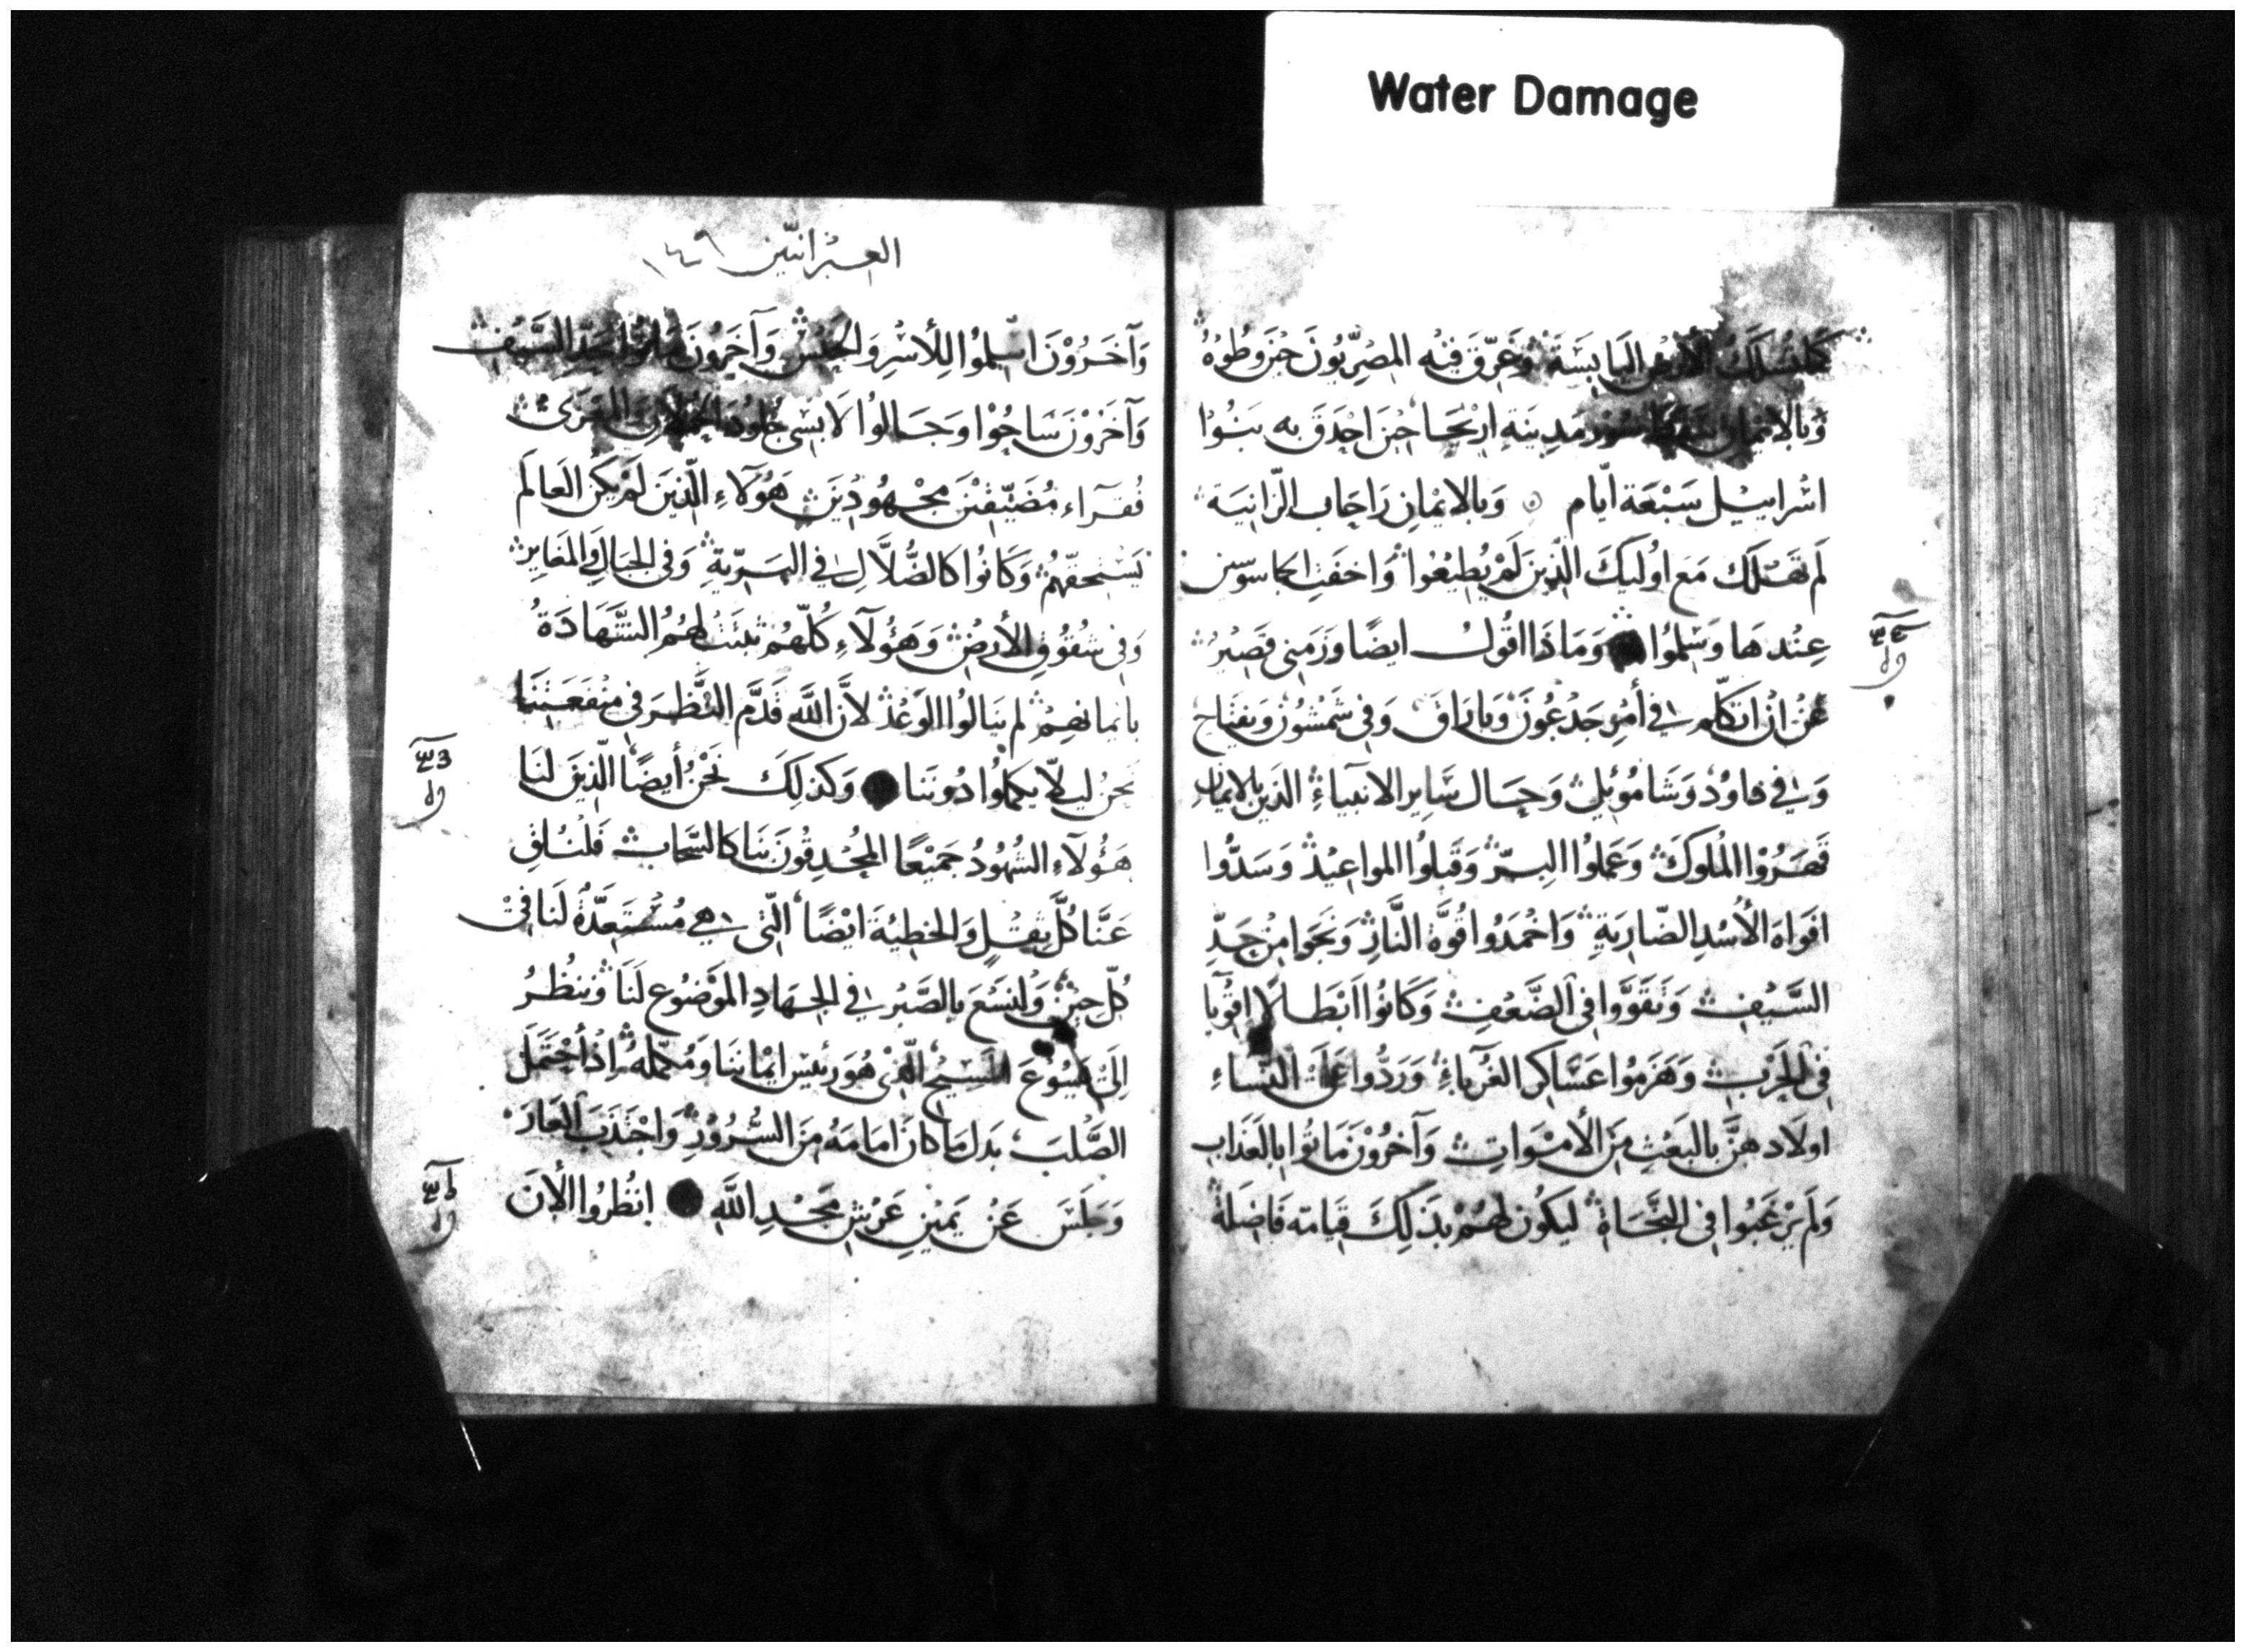 Water Damage
كما تسلك الأرض اليابسة وغرّق فيه المصريون حين وطوه
وبالايمان سور مدينة اريحا حين احدق به بنوا
اسراييل سبعة ايّام وبالايمان راحاب الزّانية
لم تهلك مع اوليك الذين لم يطيعوا واخفت الجاسوسين
عندها وسلموا وماذا اقول ايضا وزمني قصير
عن ان اتكلم في أمر جدعون وباراق وفي شمشون ويفتاح
وفي داود وشامويل وحال ساير الانبياء الذين بالايمان
قهروا الملوك وعملوا البرّ وقبلوا المواعيد وسدّوا
افواه الأسد الضارية واخمدوا قوة النار ونجوا من حدّ
السيف وتقوّوا في الضعف وكانوا ابطالا اقويا
في الحرب وهزموا عساكر الغرباء وردّوا على النساء
اولادهنّ بالبعث من الأموات وآخرون ماتوا بالعذاب
ولم يرغبوا في النجاة ليكون لهم بذلك قيامه فاضلة
العبرانيّين ١٤٦
وآخرون اسلموا للأسر والحبس وآخرون ماتوا بحدّ السيف
وآخرون ساحوا وجالوا لابسي جلود الفرى
فقرآء مضيّقين مجهودين هؤلاء الّذين لم يكن العالم
يستحقّهم وكانوا كالضّلّال في البريّة وفي الجبال والمغاير
وفي شقوق الأرض وهؤلاء كلّهم ثبتت لهم الشّهادة
بايمانهم لم ينالوا الوعد لأن الله قدّم النّظر في منفعتنا
نحن ليلّا يكملوا دوننا وكذلك نحن أيضا الّذين لنا
هؤلاء الشهود جميعا المحدقون بنا كالسّحاب فلنلق
عنّا كلّ ثقل والخطيئة ايضا الّتي هي مستعدّة لنا في
كلّ حين ولنسع بالصّبر في الجهاد الموضوع لنا وننظر
الى يسوع المسيح الّذي هو رئيس ايماننا ومكمّله اذ أحتمل
الصّلب بدل ما كان امامه من السّرور واجتذب العار
وجلس عن يمين عرش مجد الله انظروا الأن